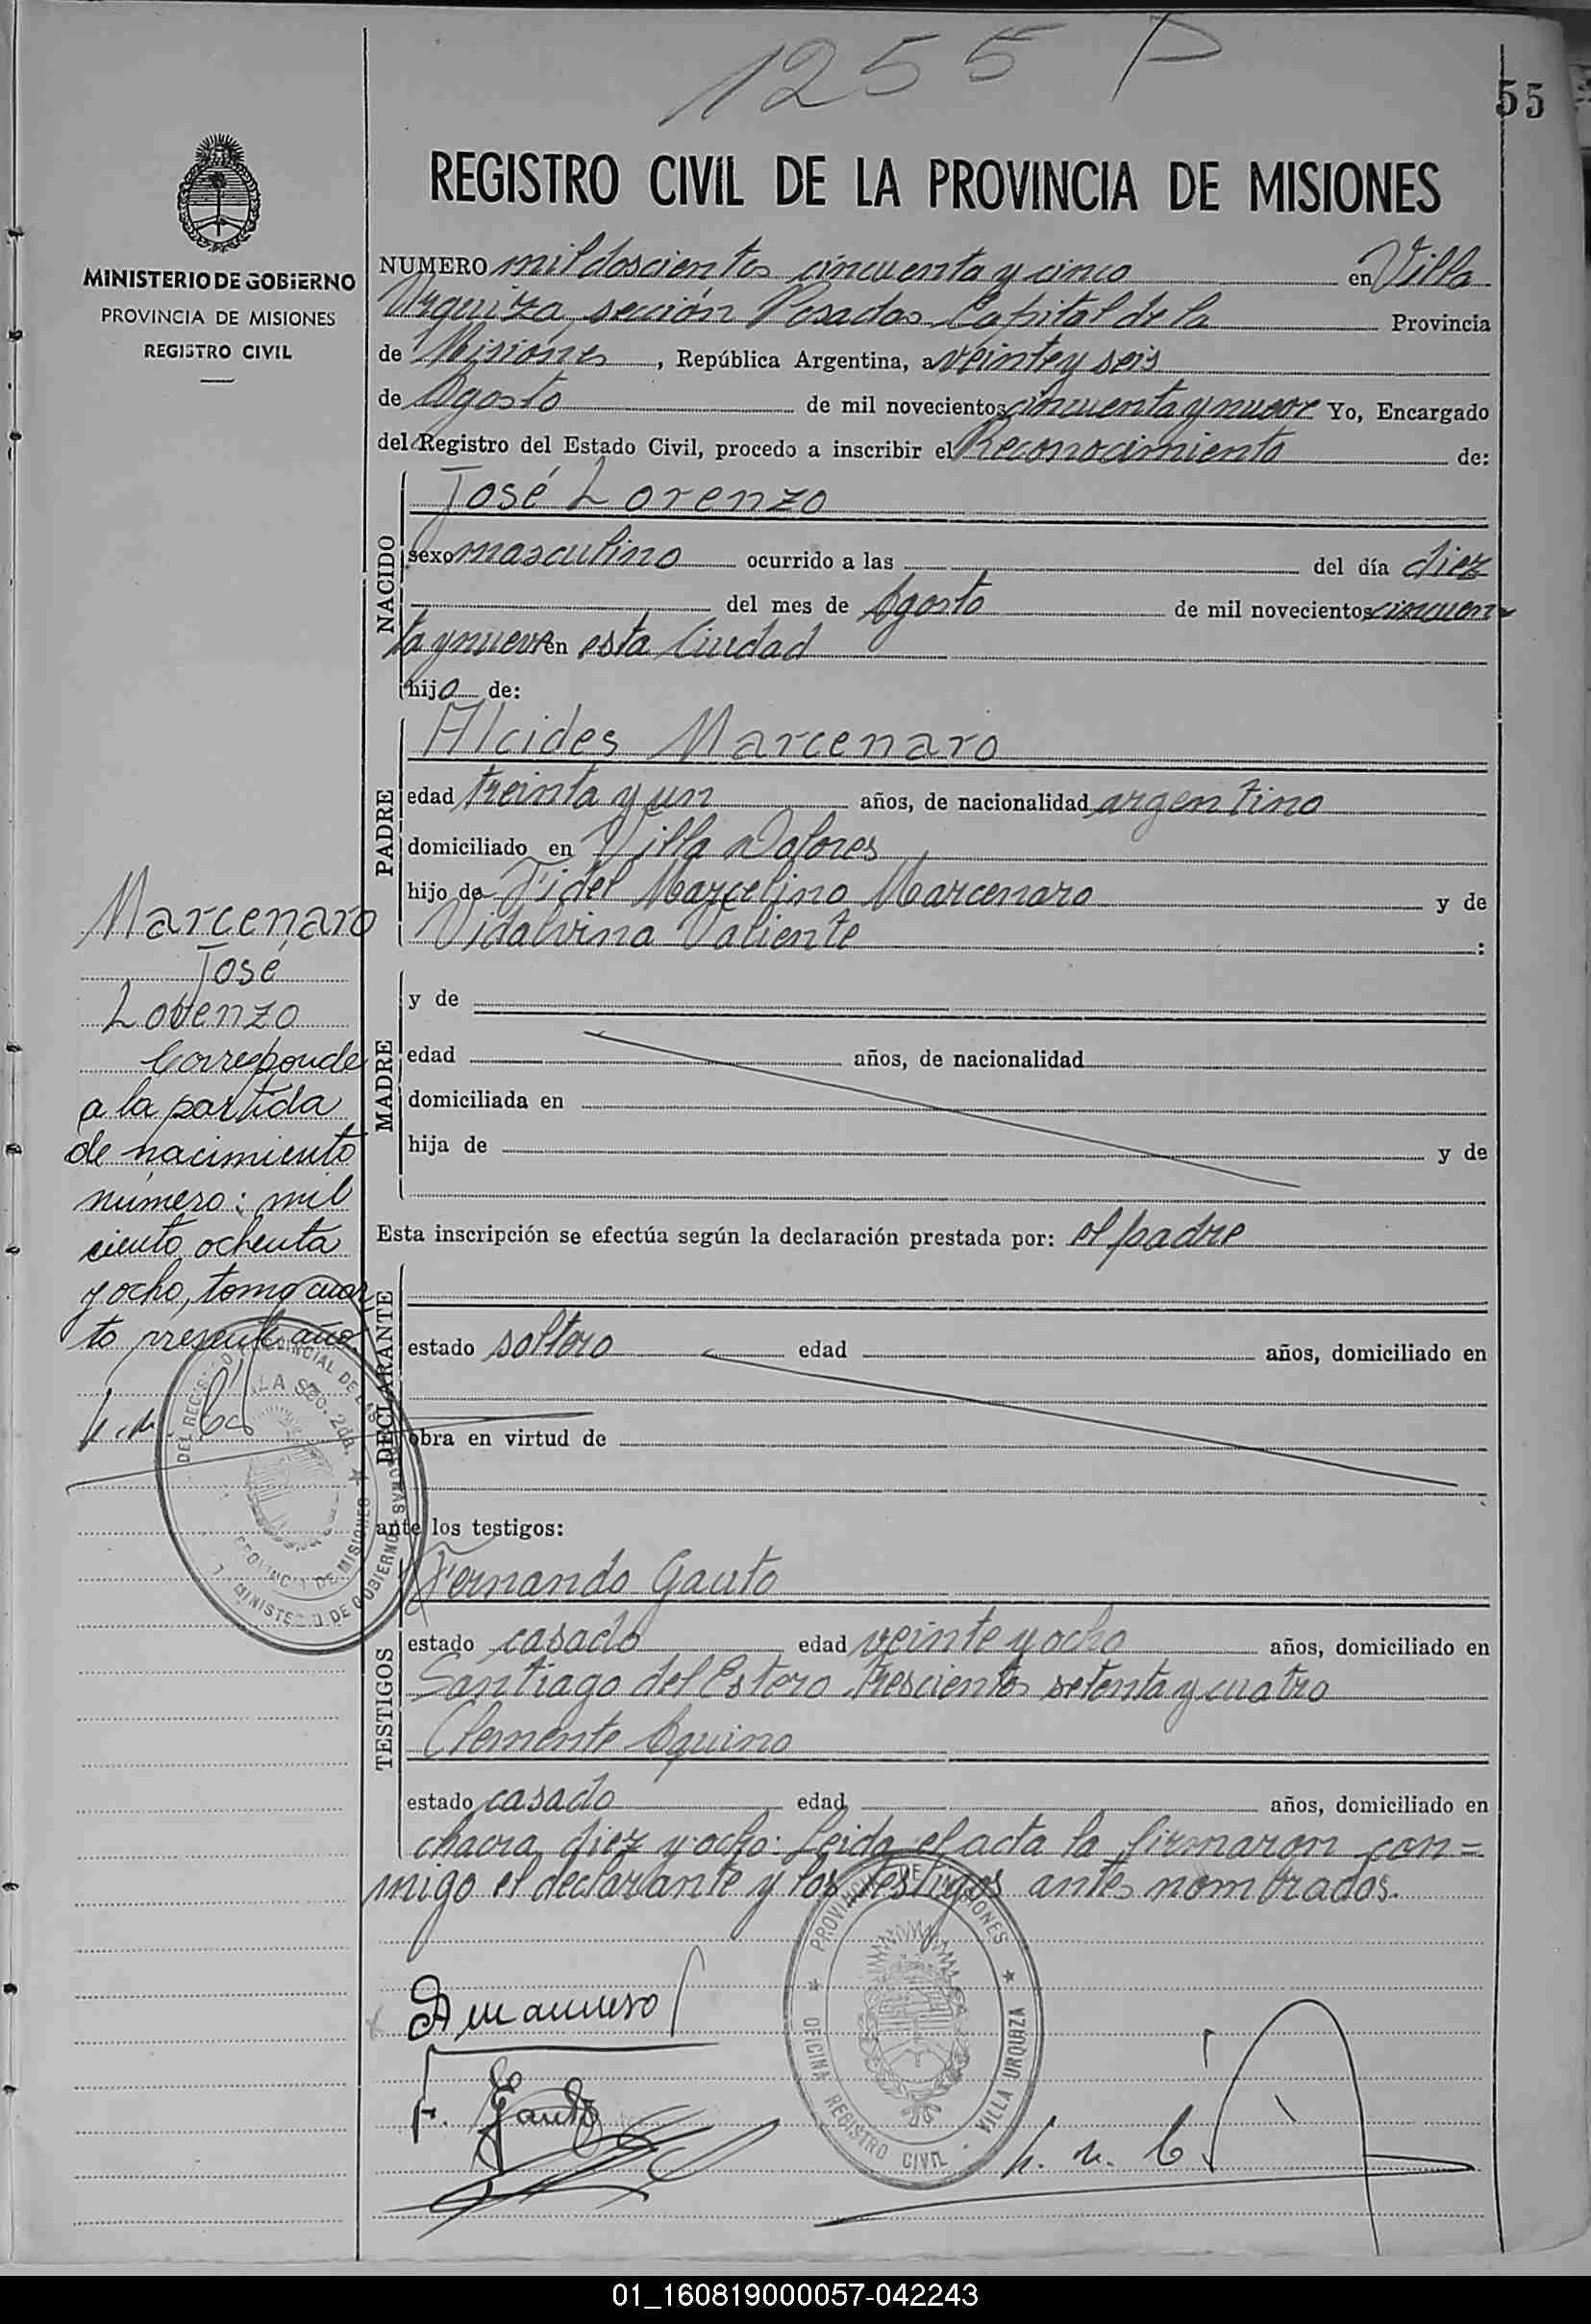 1255 P
55
REGISTRO CIVIL DE LA PROVINCIA DE MISIONES
MINISTERIO DE GOBIERNO
PROVINCIA DE MISIONES
REGISTRO CIVIL
NUMERO mil doscientos cincuenta y cinco en Villa
Urquiza, sección Posadas Capital de la Provincia
de Misiones, República Argentina, a veinte y seis
de Agosto de mil novecientos cincuenta y nueve Yo, Encargado
del Registro del Estado Civil, procedo a inscribir el Reconocimiento de:
NACIDO
José Lorenzo
sexo masculino ocurrido a las del día diez
del mes de Agosto de mil novecientos cincuen-
ta y nueve en esta Ciudad
hijo de:
PADRE
Alcides Marcenaro
edad treinta y un años, de nacionalidad argentino
domiciliado en Villa Dolores
hijo de Fidel Marcelino Marcenaro y de
Vidalvina Valiente :
MADRE
y de
edad años, de nacionalidad
domiciliada en
hija de y de
Esta inscripción se efectúa según la declaración prestada por: el padre
DECLARANTE
estado soltero edad años, domiciliado en
obra en virtud de
ante los testigos:
TESTIGOS
Fernando Gauto
estado casado edad veinte y ocho años, domiciliado en
Santiago del Estero trescientos setenta y cuatro
Clemente Aquino
estado casado edad años, domiciliado en
chacra diez y ocho: Leida el acta la firmaron con=
migo el declarante y los testigos antes nombrados.
Marcenaro
José
Lorenzo
Corresponde
a la partida
de nacimiento
número: mil
ciento ochenta
y ocho, tomo cuar
to presente año.
PROVINCIA DE MISIONES
OFICINA REGISTRO CIVIL - VILLA URQUIZA
F. Gauto
01_160819000057-042243